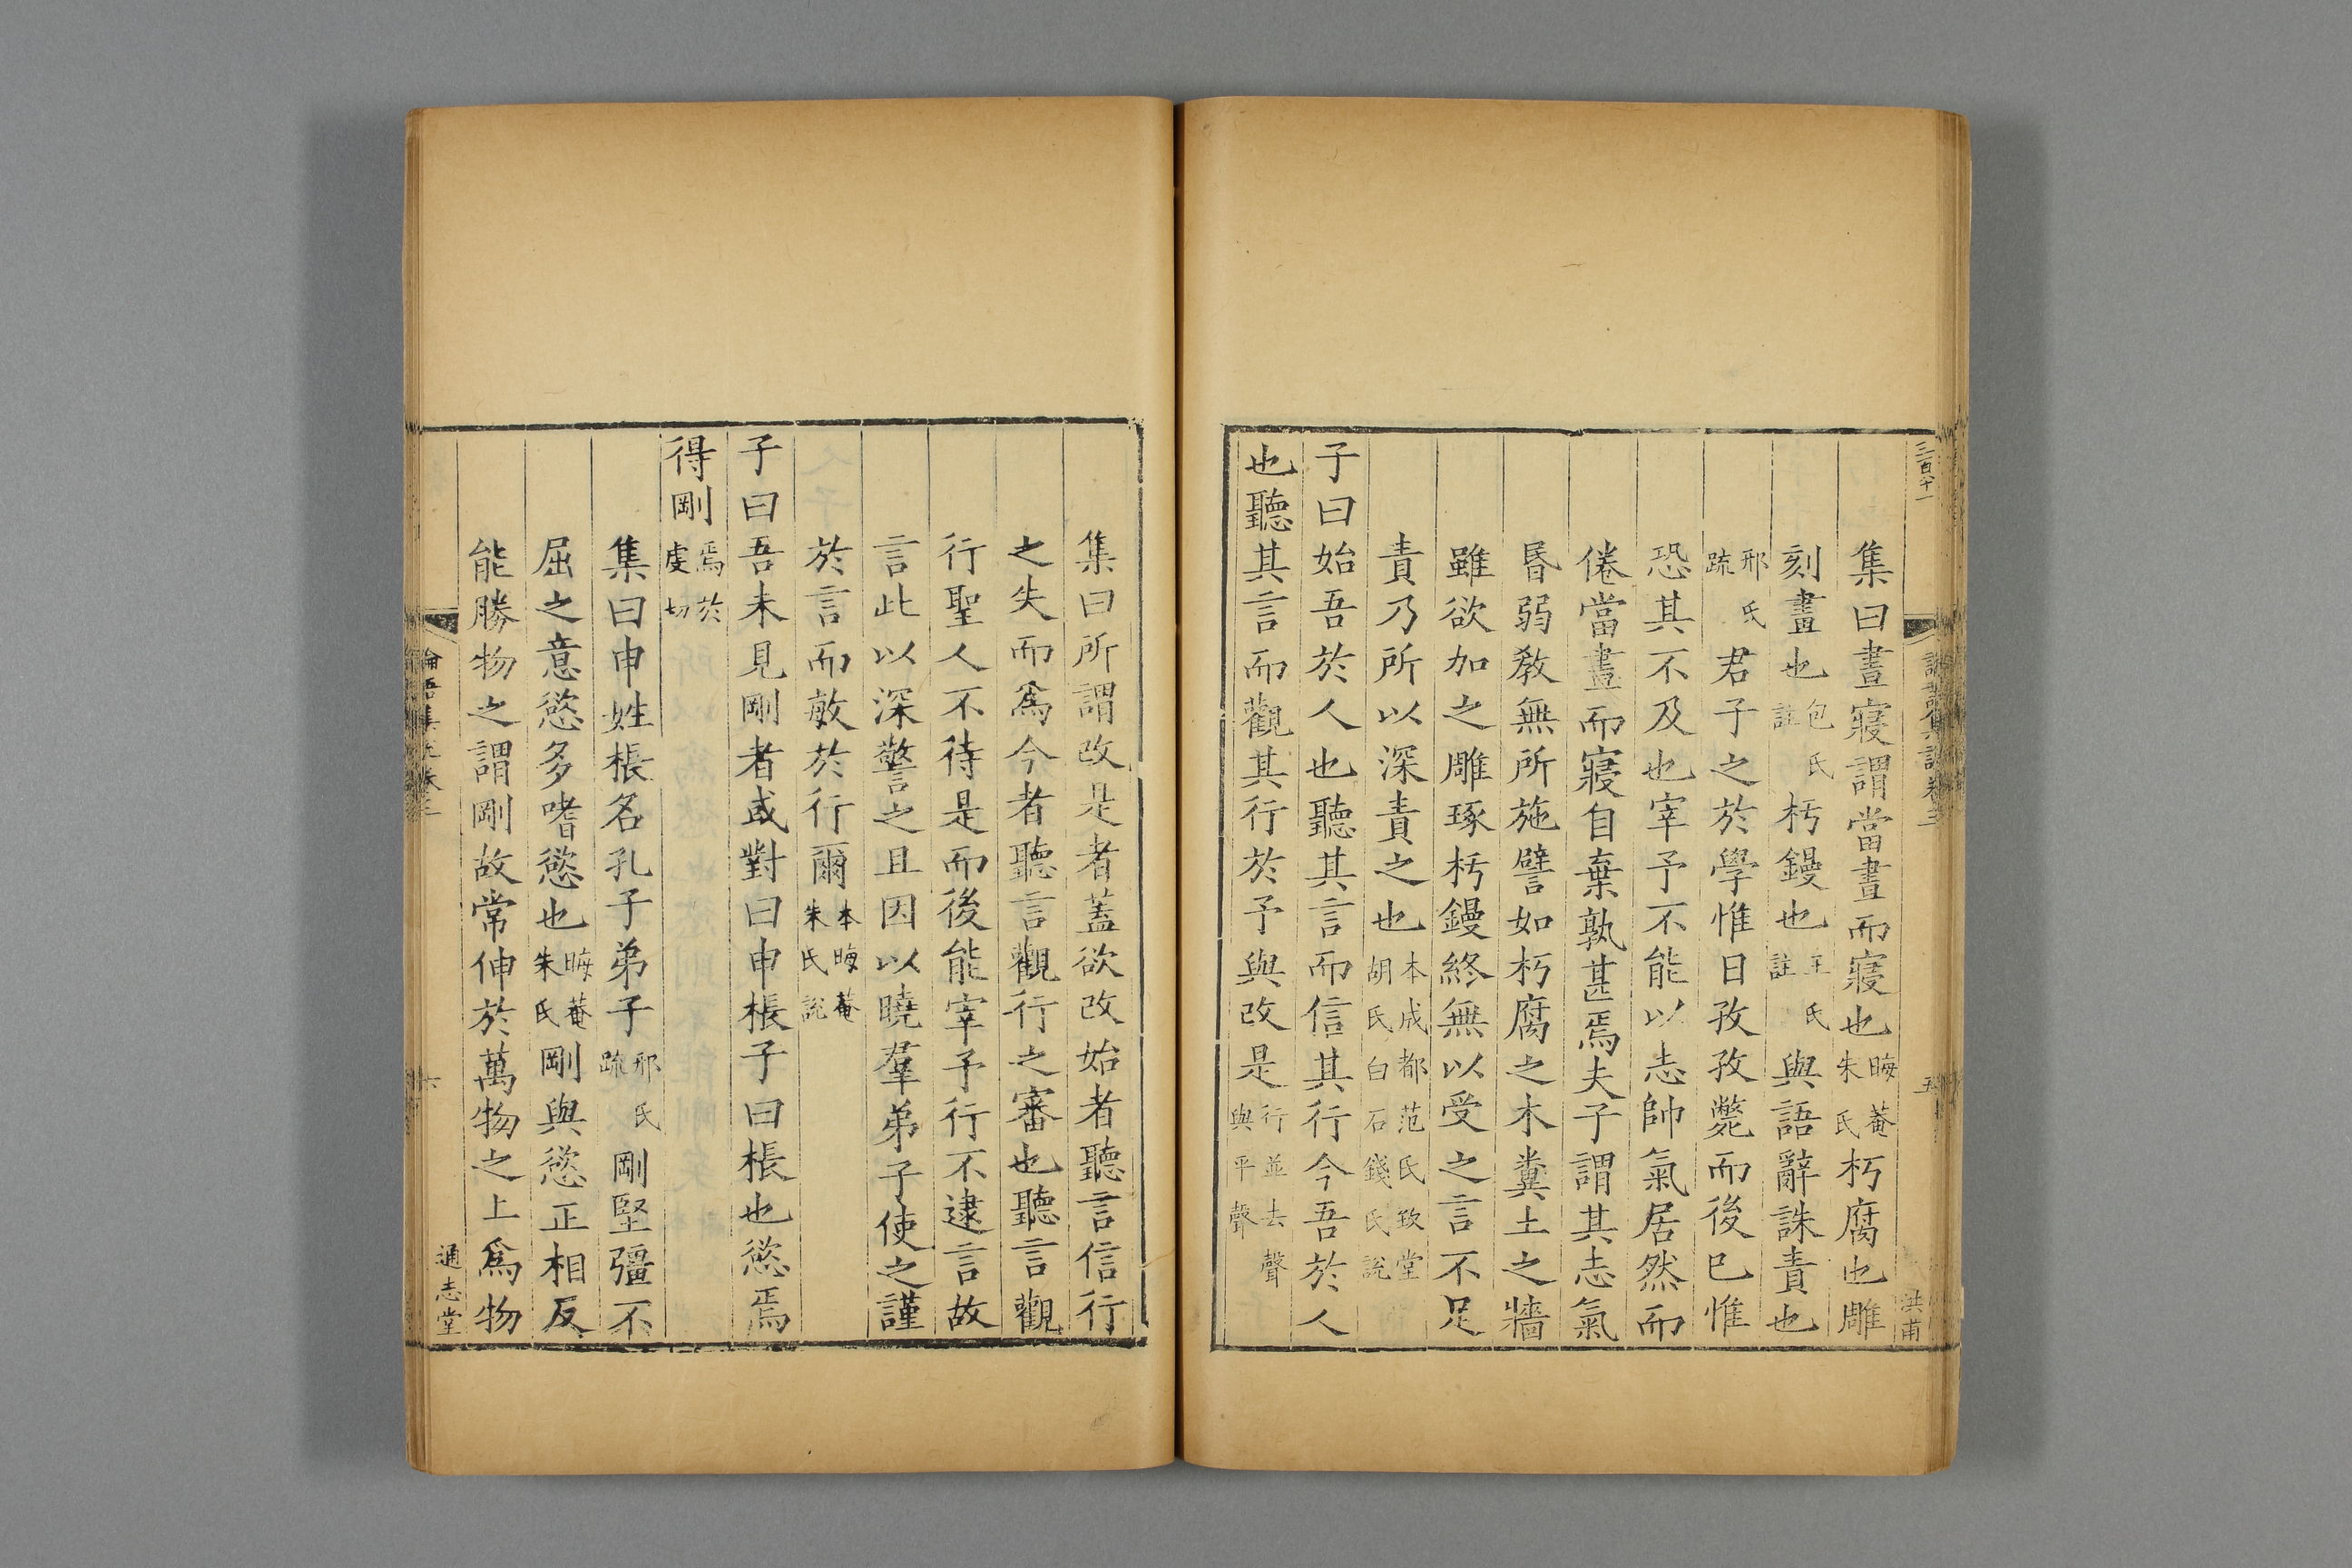 三百八十一
五
洪甫
集曰晝寢謂當晝而寢也晦菴朱氏朽腐也雕
刻畫也包氏註杇鏝也王氏註與語辭誅責也
邢氏疏君子之於學惟日孜孜斃而後已惟
恐其不及也宰予不能以志帥氣居然而
倦當晝而寢自棄孰甚焉夫子謂其志氣
昬弱教無所施譬如朽腐之木糞土之牆
雖欲加之雕琢杇鏝終無以受之言不足
責乃所以深責之也本成都范氏致堂胡氏白石錢氏說
子曰始吾於人也聽其言而信其行今吾於人
也聽其言而觀其行於予與改是行並去聲與平聲
集曰所謂改是者蓋欲改始者聽言信行
之失而爲今者聽言觀行之審也聽言觀
行聖人不待是而後能宰予行不逮言故
言此以深警之且因以曉羣弟子使之謹
於言而敏於行爾本晦菴朱氏說
子曰吾未見剛者或對曰申棖子曰棖也慾焉
得剛焉於虔切
集曰申姓棖名孔子弟子邢氏疏剛堅彊不
屈之意慾多嗜慾也晦菴朱氏剛與慾正相反
能勝物之謂剛故常伸於萬物之上爲物
論語集說卷三
六
通志堂